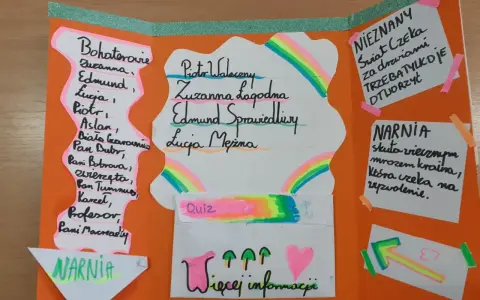 Bohaterowie
Zuzanna,
Edmund,
Łucja,
Piotr,
Aslan,
Biała Czarownica
Pan Bóbr,
Pani Bobrowa,
zwierzęta,
Pan Tumnus,
Karzeł,
Profesor,
Pani Macready
NARNIA
Piotr Waleczny
Zuzanna Łagodna
Edmund Sprawiedliwy
Łucja Mężna
Quiz
Więcej informacji
NIEZNANY
świat czeka
za drzwiami
TRZEBA TYLKO JE
OTWORZYĆ
NARNIA
skuta wiecznym
mrozem kraina,
która czeka na